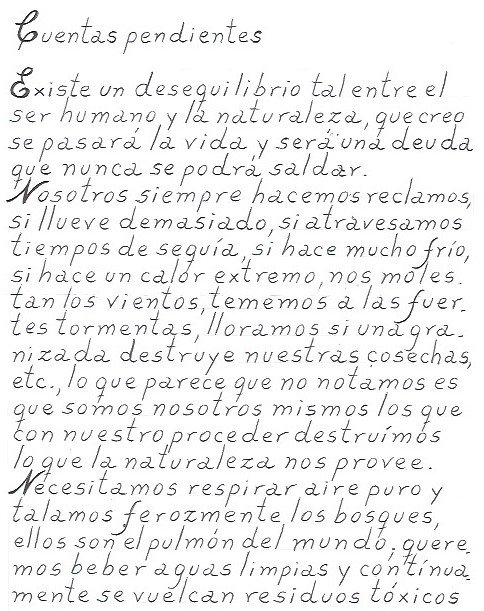 Cuentas pendientes
Existe un desequilibrio tal entre el
ser humano y la naturaleza, que creo
se pasará la vida y será una deuda
que nunca se podrá saldar.
Nosotros siempre hacemos reclamos,
si llueve demasiado, si atravesamos
tiempos de seguía, si hace mucho frío,
si hace un calor extremo, nos moles-
tan los vientos, tememos a las fuer-
tes tormentas, lloramos si una gra-
nizada destruye nuestras cosechas,
etc., lo que parece que no notamos es
que somos nosotros mismos los que
con nuestro proceder destruímos
lo que la naturaleza nos provee.
Necesitamos respirar aire puro y
talamos ferozmente los bosques,
ellos son el pulmón del mundo; quere-
mos beber aguas limpias y contínua-
mente se vuelcan residuos tóxicos